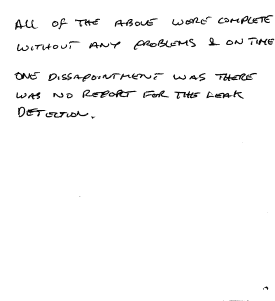 ALL OF THE ABOVE WORK COMPLETE
WITHOUT ANY PROBLEMS & ON TIME
ONE DISSAPOINTMENT WAS THERE
WAS NO REPORT FOR THE LEAK
DETECTION.